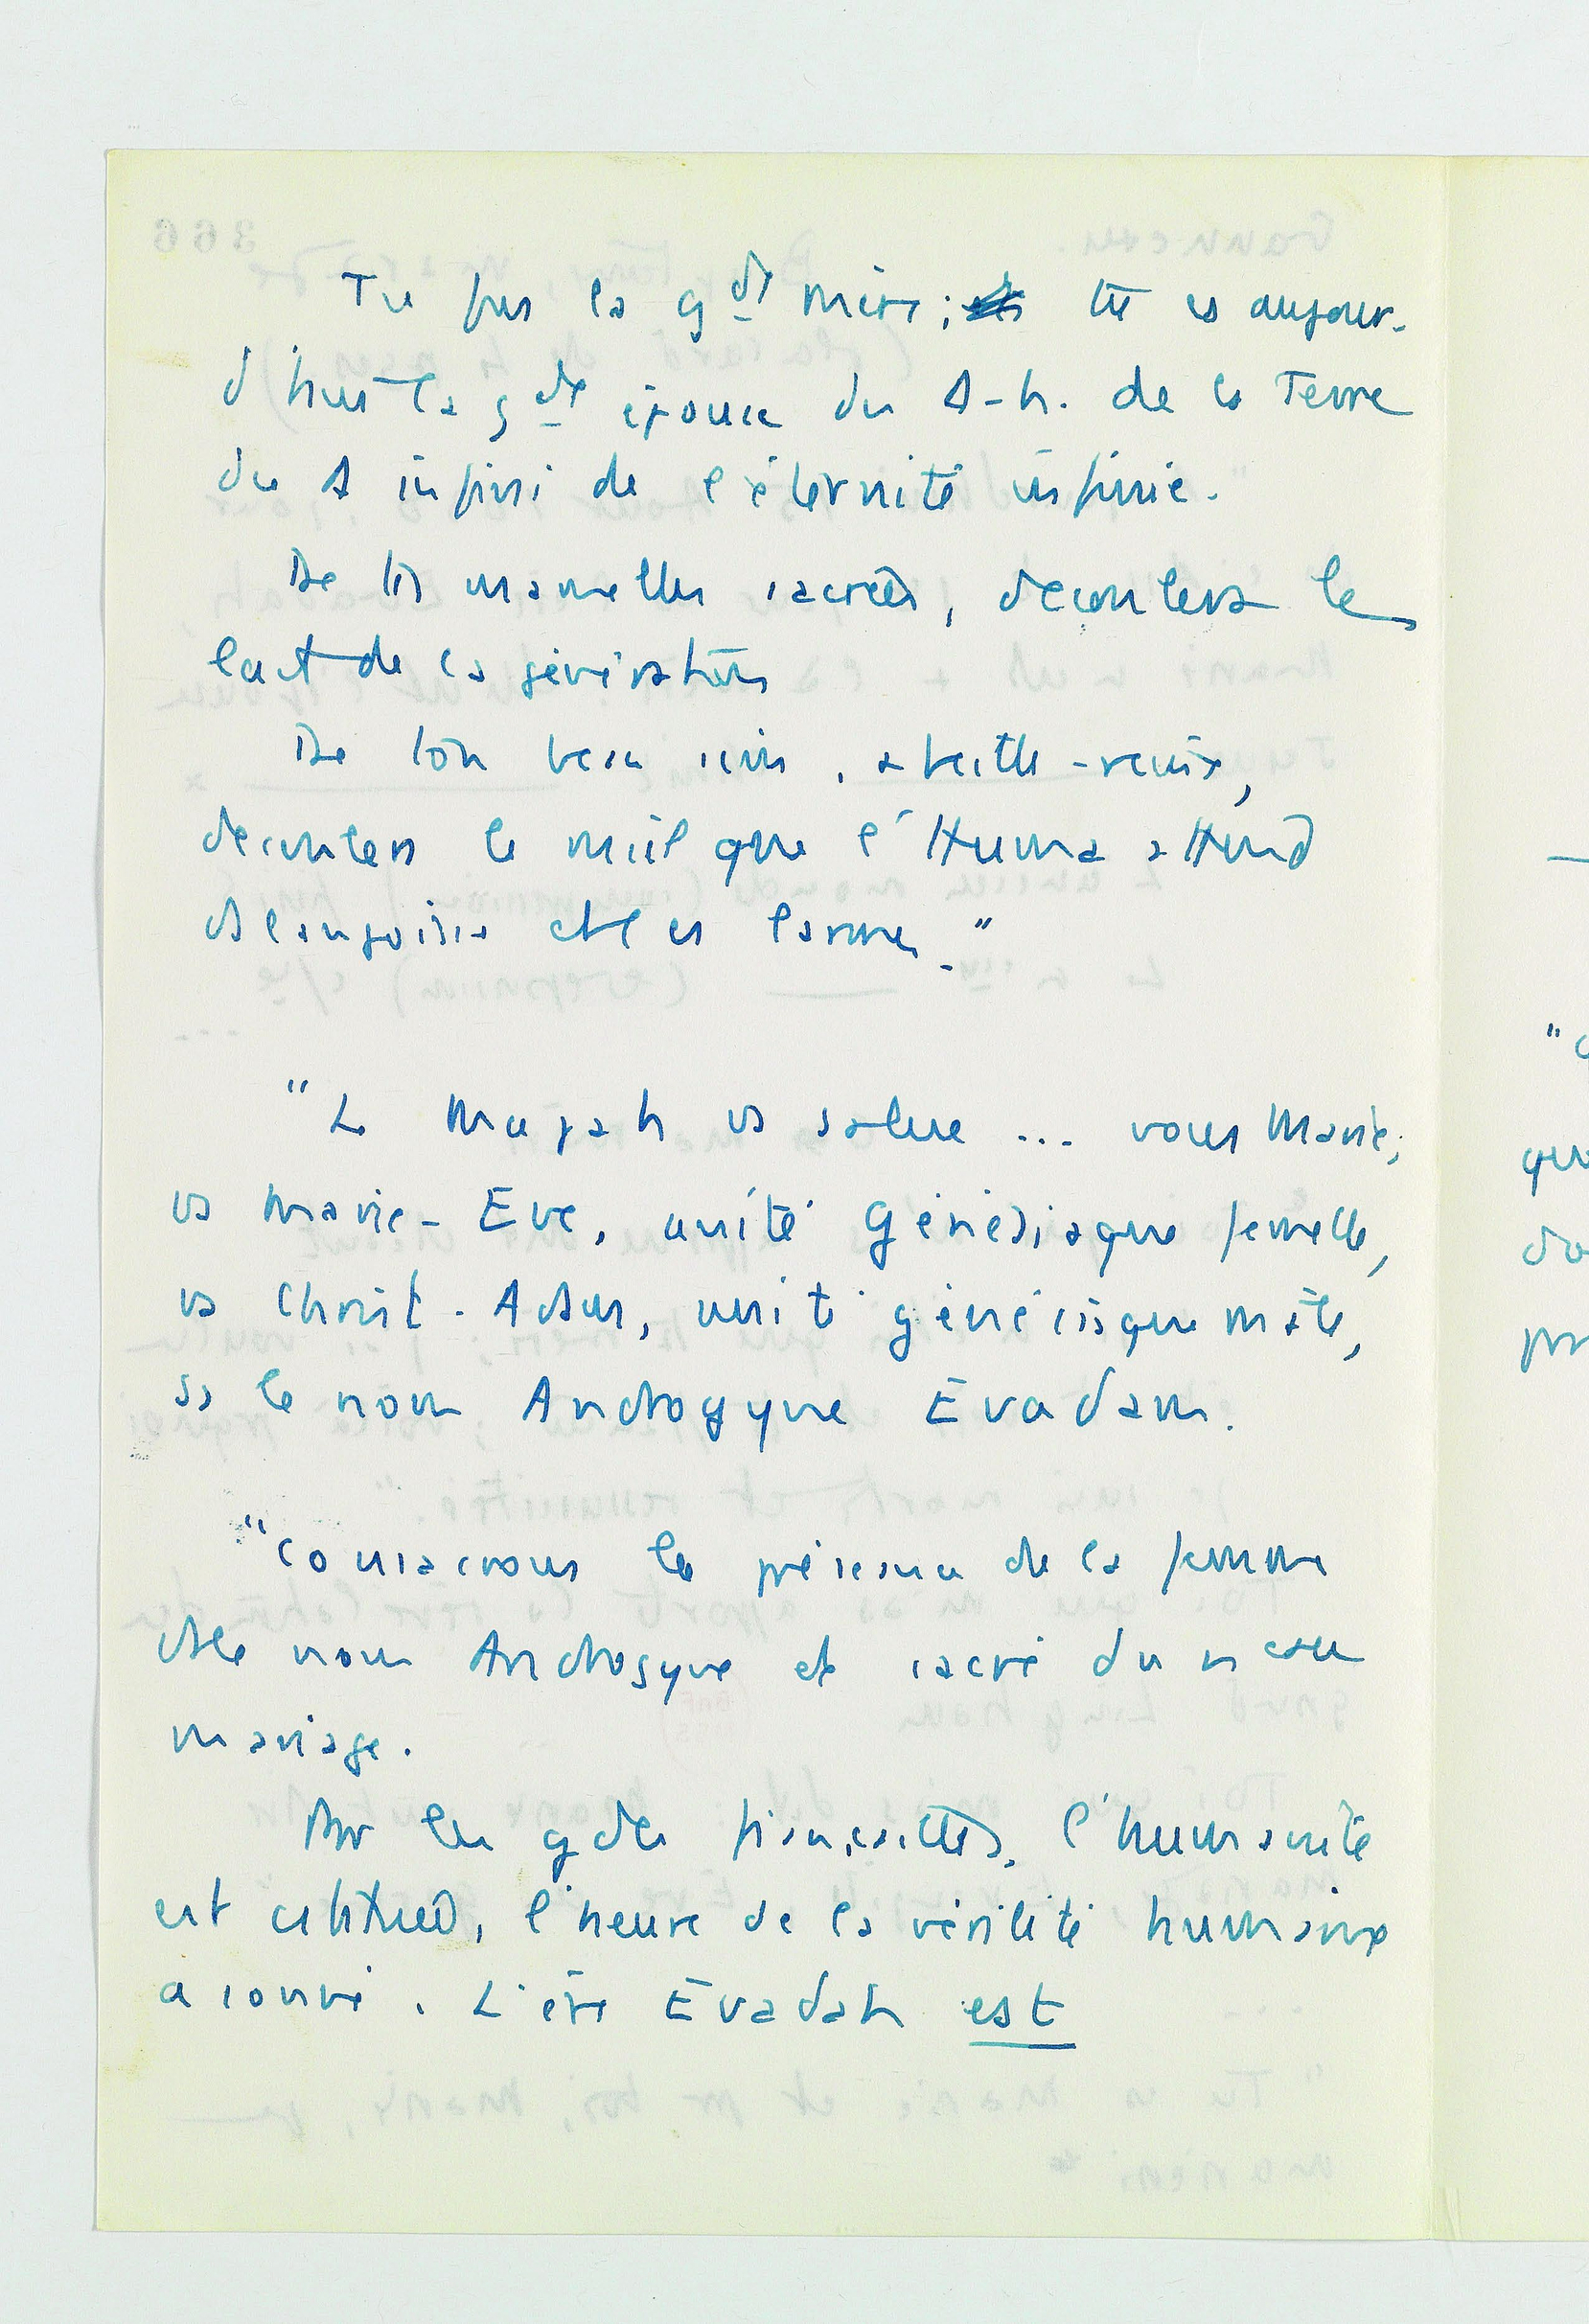 Tu fus la gde mère ; tu es aujour-
d'hui la gde épouse du A-h. de la Terre
du A infini de l'éternité infinie.
De tes mamelles sacrées, découlera le
lait de la génération
De ton beau sein, abeille-reine,
découlera le miel que l'Huma attend
ds l'angoisse et les larmes."
"Le Mapah vs salue ... vous Marie,
vs Marie-Eve, unité Génésiaque femelle,
vs Christ-Adam, unité génésiaque mâle,
ss le nom Androgyne Evadam.
"Consacrons la présence de la femme
ds le nom Androgyne et sacré du nveau
mariage.
Par les gdes fiançailles, l'humanité
est constituée, l'heure de la virilité humaine
a sonné. L'ère Evadah est
"
qu
do
pr